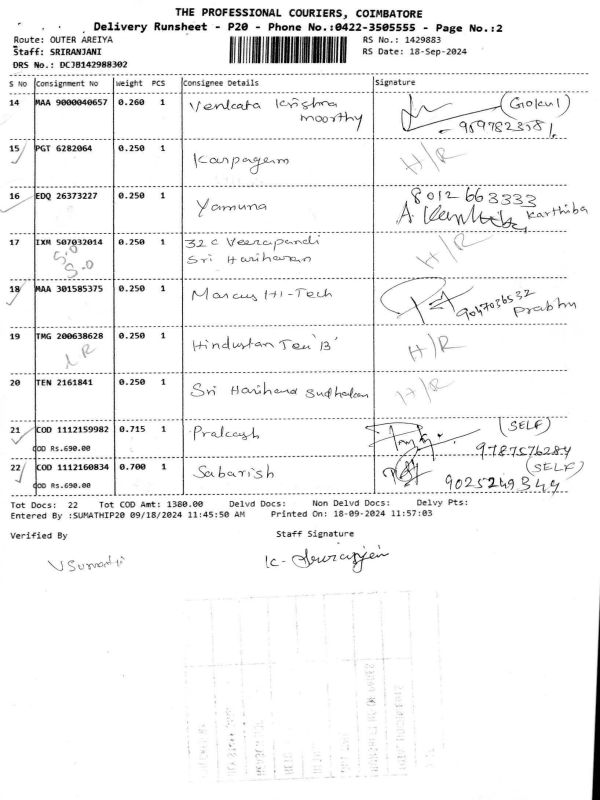 THE PROFESSIONAL COURIERS, COIMBATORE
Delivery Runsheet - P20 - Phone No.:0422-3505555 - Page No.:2
Route: OUTER AREIYA
RS No.: 1429883
Staff: SRIRANJANI
RS Date: 18-Sep-2024
DRS No.: DCJB142988302
S No Consignment No Weight PCS Consignee Details Signature
14 MAA 9000040657 0.260 1 Venkata Krishna
moorthy
(Gokul)
15 PGT 6282064 0.250 1 Karpagam H/R
16 EDQ 26373227 0.250 1 Yamuna
8012 663333
Karthiba
17 IXM 507032014 0.250 1 32 C Veerapandi
Sri Hariharan H/R
S.O
S.O
18 MAA 301585375 0.250 1 Marcus Hi-Tech
9047036532
Prabhu
19 TMG 200638628 0.250 1 Hindustan Tex 'B' H/R
20 TEN 2161841 0.250 1 Sri Harihara Sudhakan H/R
21 COD 1112159982 0.715 1 Prakash (SELF)
COD Rs.690.00
9787576284
22 COD 1112160834 0.700 1 Sabarish (SELF)
COD Rs.690.00
9025249349
Tot Docs: 22 Tot COD Amt: 1380.00 Delvd Docs: Non Delvd Docs: Delvy Pts:
Entered By :SUMATHIP20 09/18/2024 11:45:50 AM Printed On: 18-09-2024 11:57:03
Verified By Staff Signature
V Sumathi